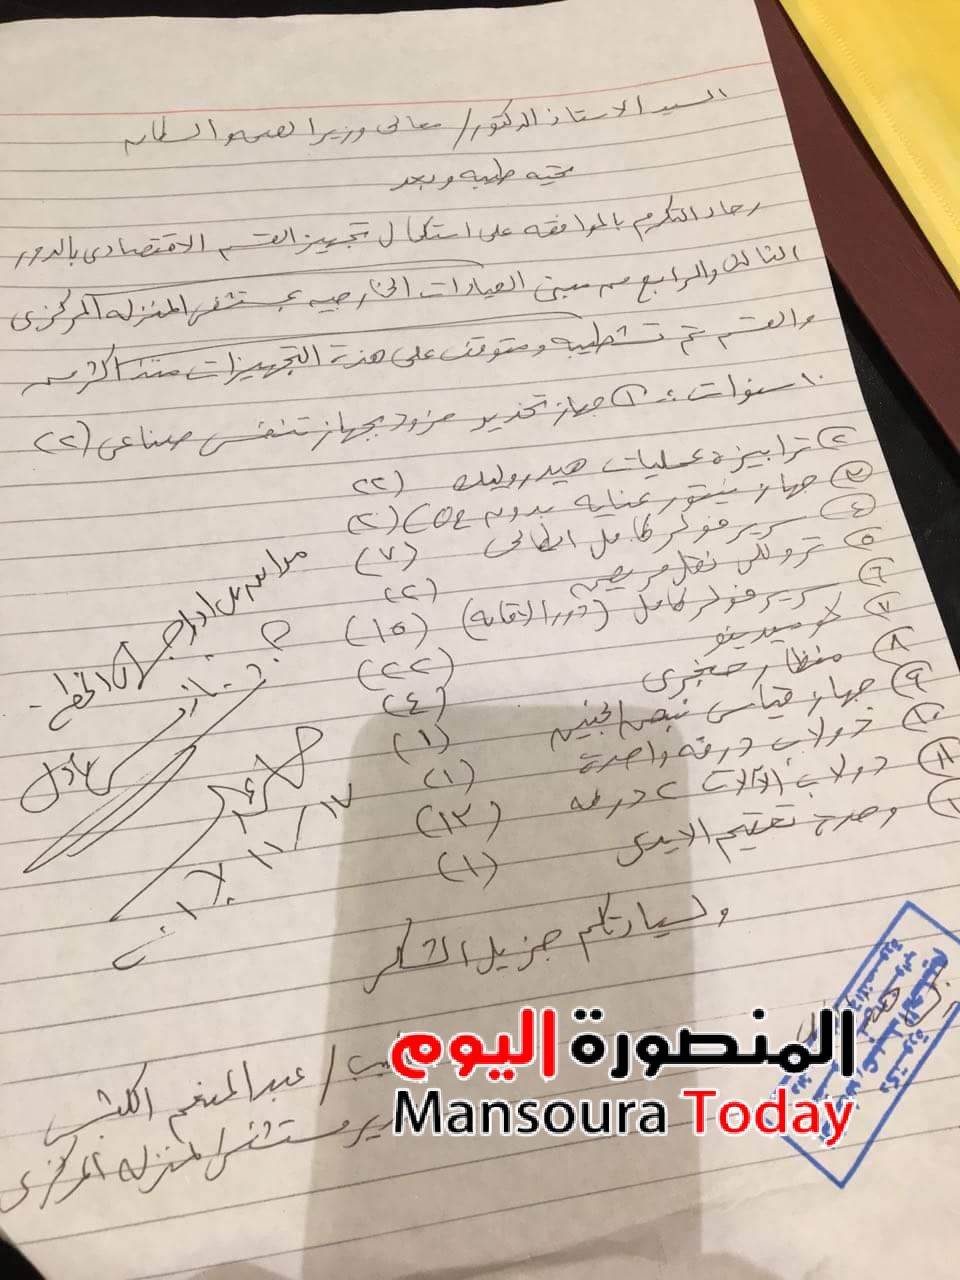 السيد الاستاذ الدكتور / معالى وزير الصحه والسكان
تحيه طيبه وبعد
رجاء التكرم بالموافقه على استكمال تجهيز القسم الاقتصادى بالدور
الثالث والرابع من مبنى العيادات الخارجيه بمستشفى المنزله المركزى
والقسم تم تشطيبه ومتوقف على هذة التجهيزات منذ اكثر من
١٠ سنوات :- ١ جهاز تخدير مزود بجهاز تنفس صناعى (٢)
٢ ترابيزة عمليات هيدروليك (٢)
٣ جهاز منيتور عنايه بدون CO2 (٢)
٤ سرير فولر كامل (٧)
٥ تروللى نقل مريض (٢)
٦ سرير فولر كامل (دور الاقامه) (١٥)
٧ كوميدينو (٢٢)
٨ منظار حنجرى (٤)
٩ جهاز قياس نبض الجنين (١)
١٠ دولاب درفه واحدة (١)
١١ دولاب الآلات ٢ درفه (١٢)
١٢ وحدة تعقيم الايدى (١)
ولسيادتكم جزيل الشكر
عبد المنعم
مستشفى المنزله المركزى
المنصورة اليوم
Mansoura Today